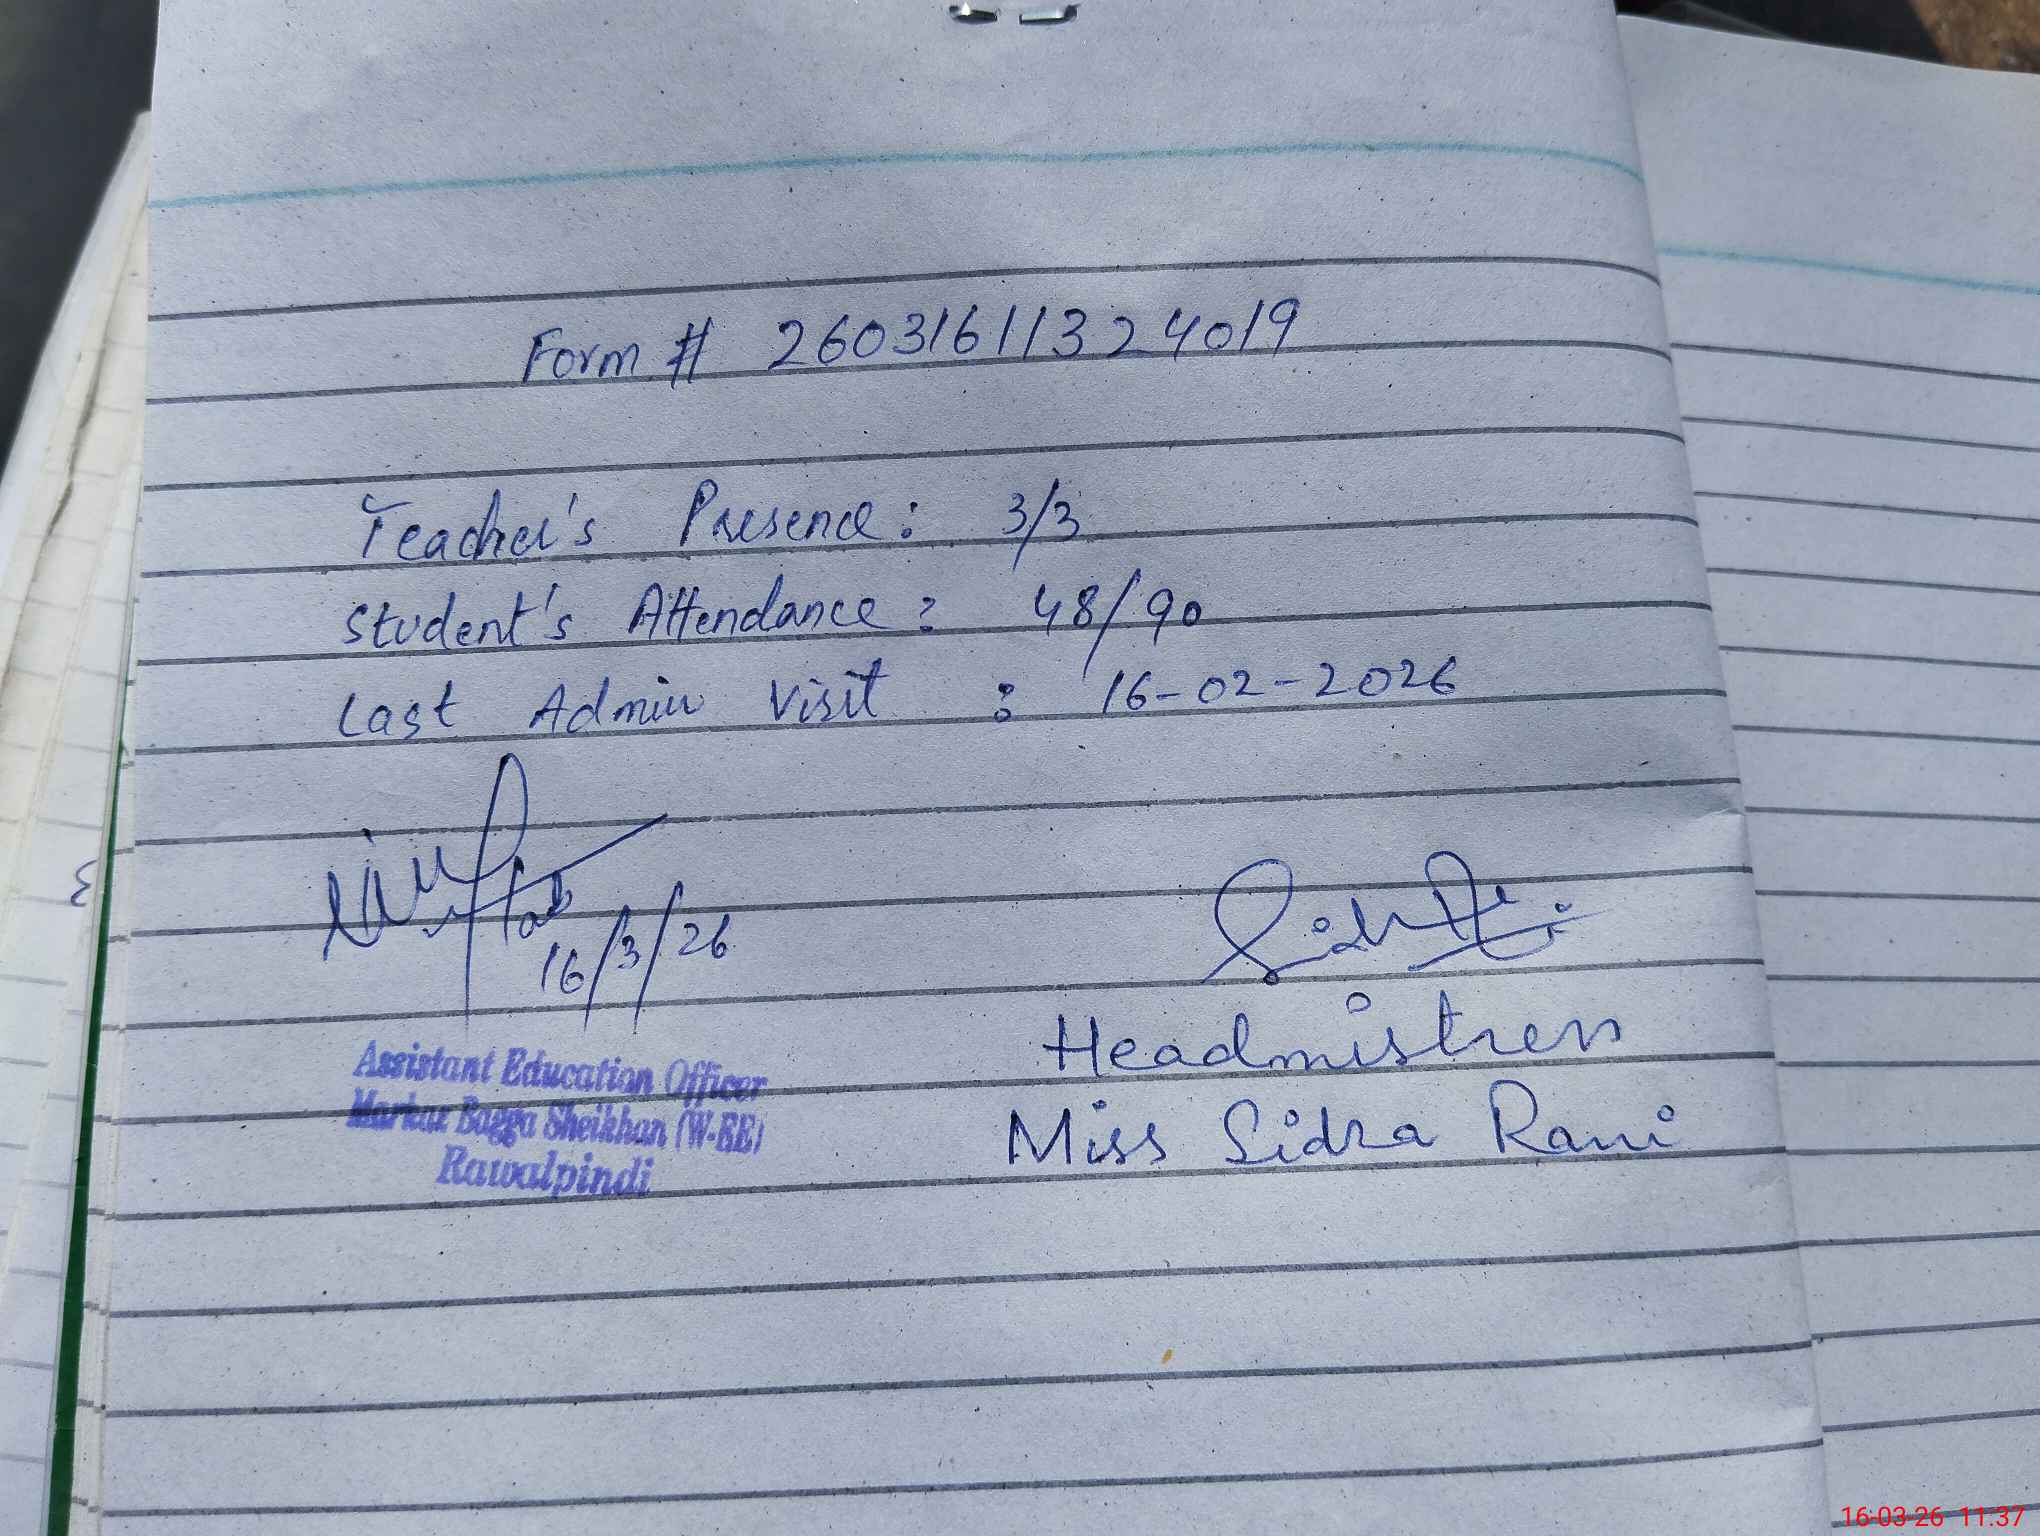 Form # 26031611324019
Teacher's Presence: 3/3
Student's Attendance: 48/90
Last Admin Visit : 16-02-2026
16/3/26
Assistant Education Officer
Markaz Bagga Sheikhan (W-EE)
Rawalpindi
Headmistress
Miss Sidra Rani
16-03-26 11:37